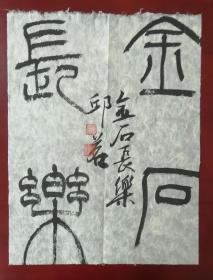 金石
長樂
金石長樂
邱若